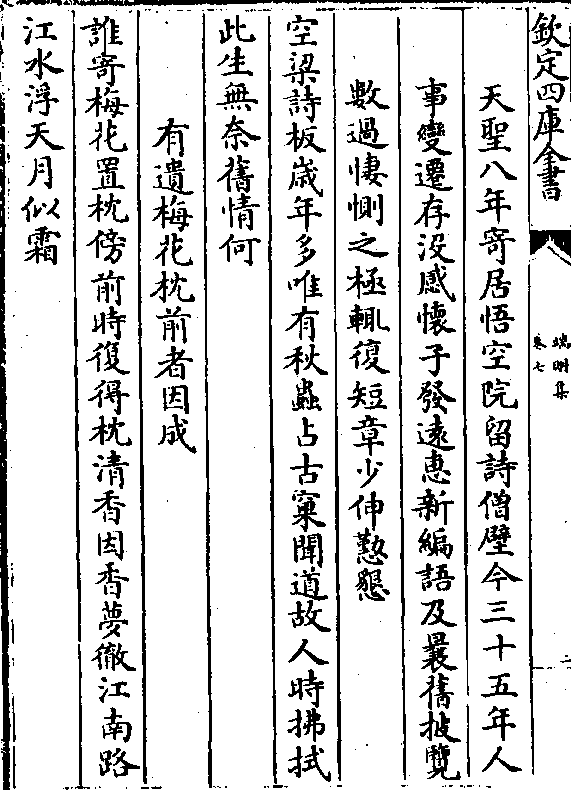 欽定四庫全書
端明集
卷七
天聖八年寄居悟空院留詩僧壁今三十五年人
事變遷存沒感懷子發遠惠新編語及曩舊披覽
數過悽惻之極輒復短章少伸懃懇
空梁詩板歳年多唯有秋蟲占古窠聞道故人時拂拭
此生無奈舊情何
有遺梅花枕前者因成
誰寄梅花置枕傍前時復得枕清香因香夢徹江南路
江水浮天月似霜